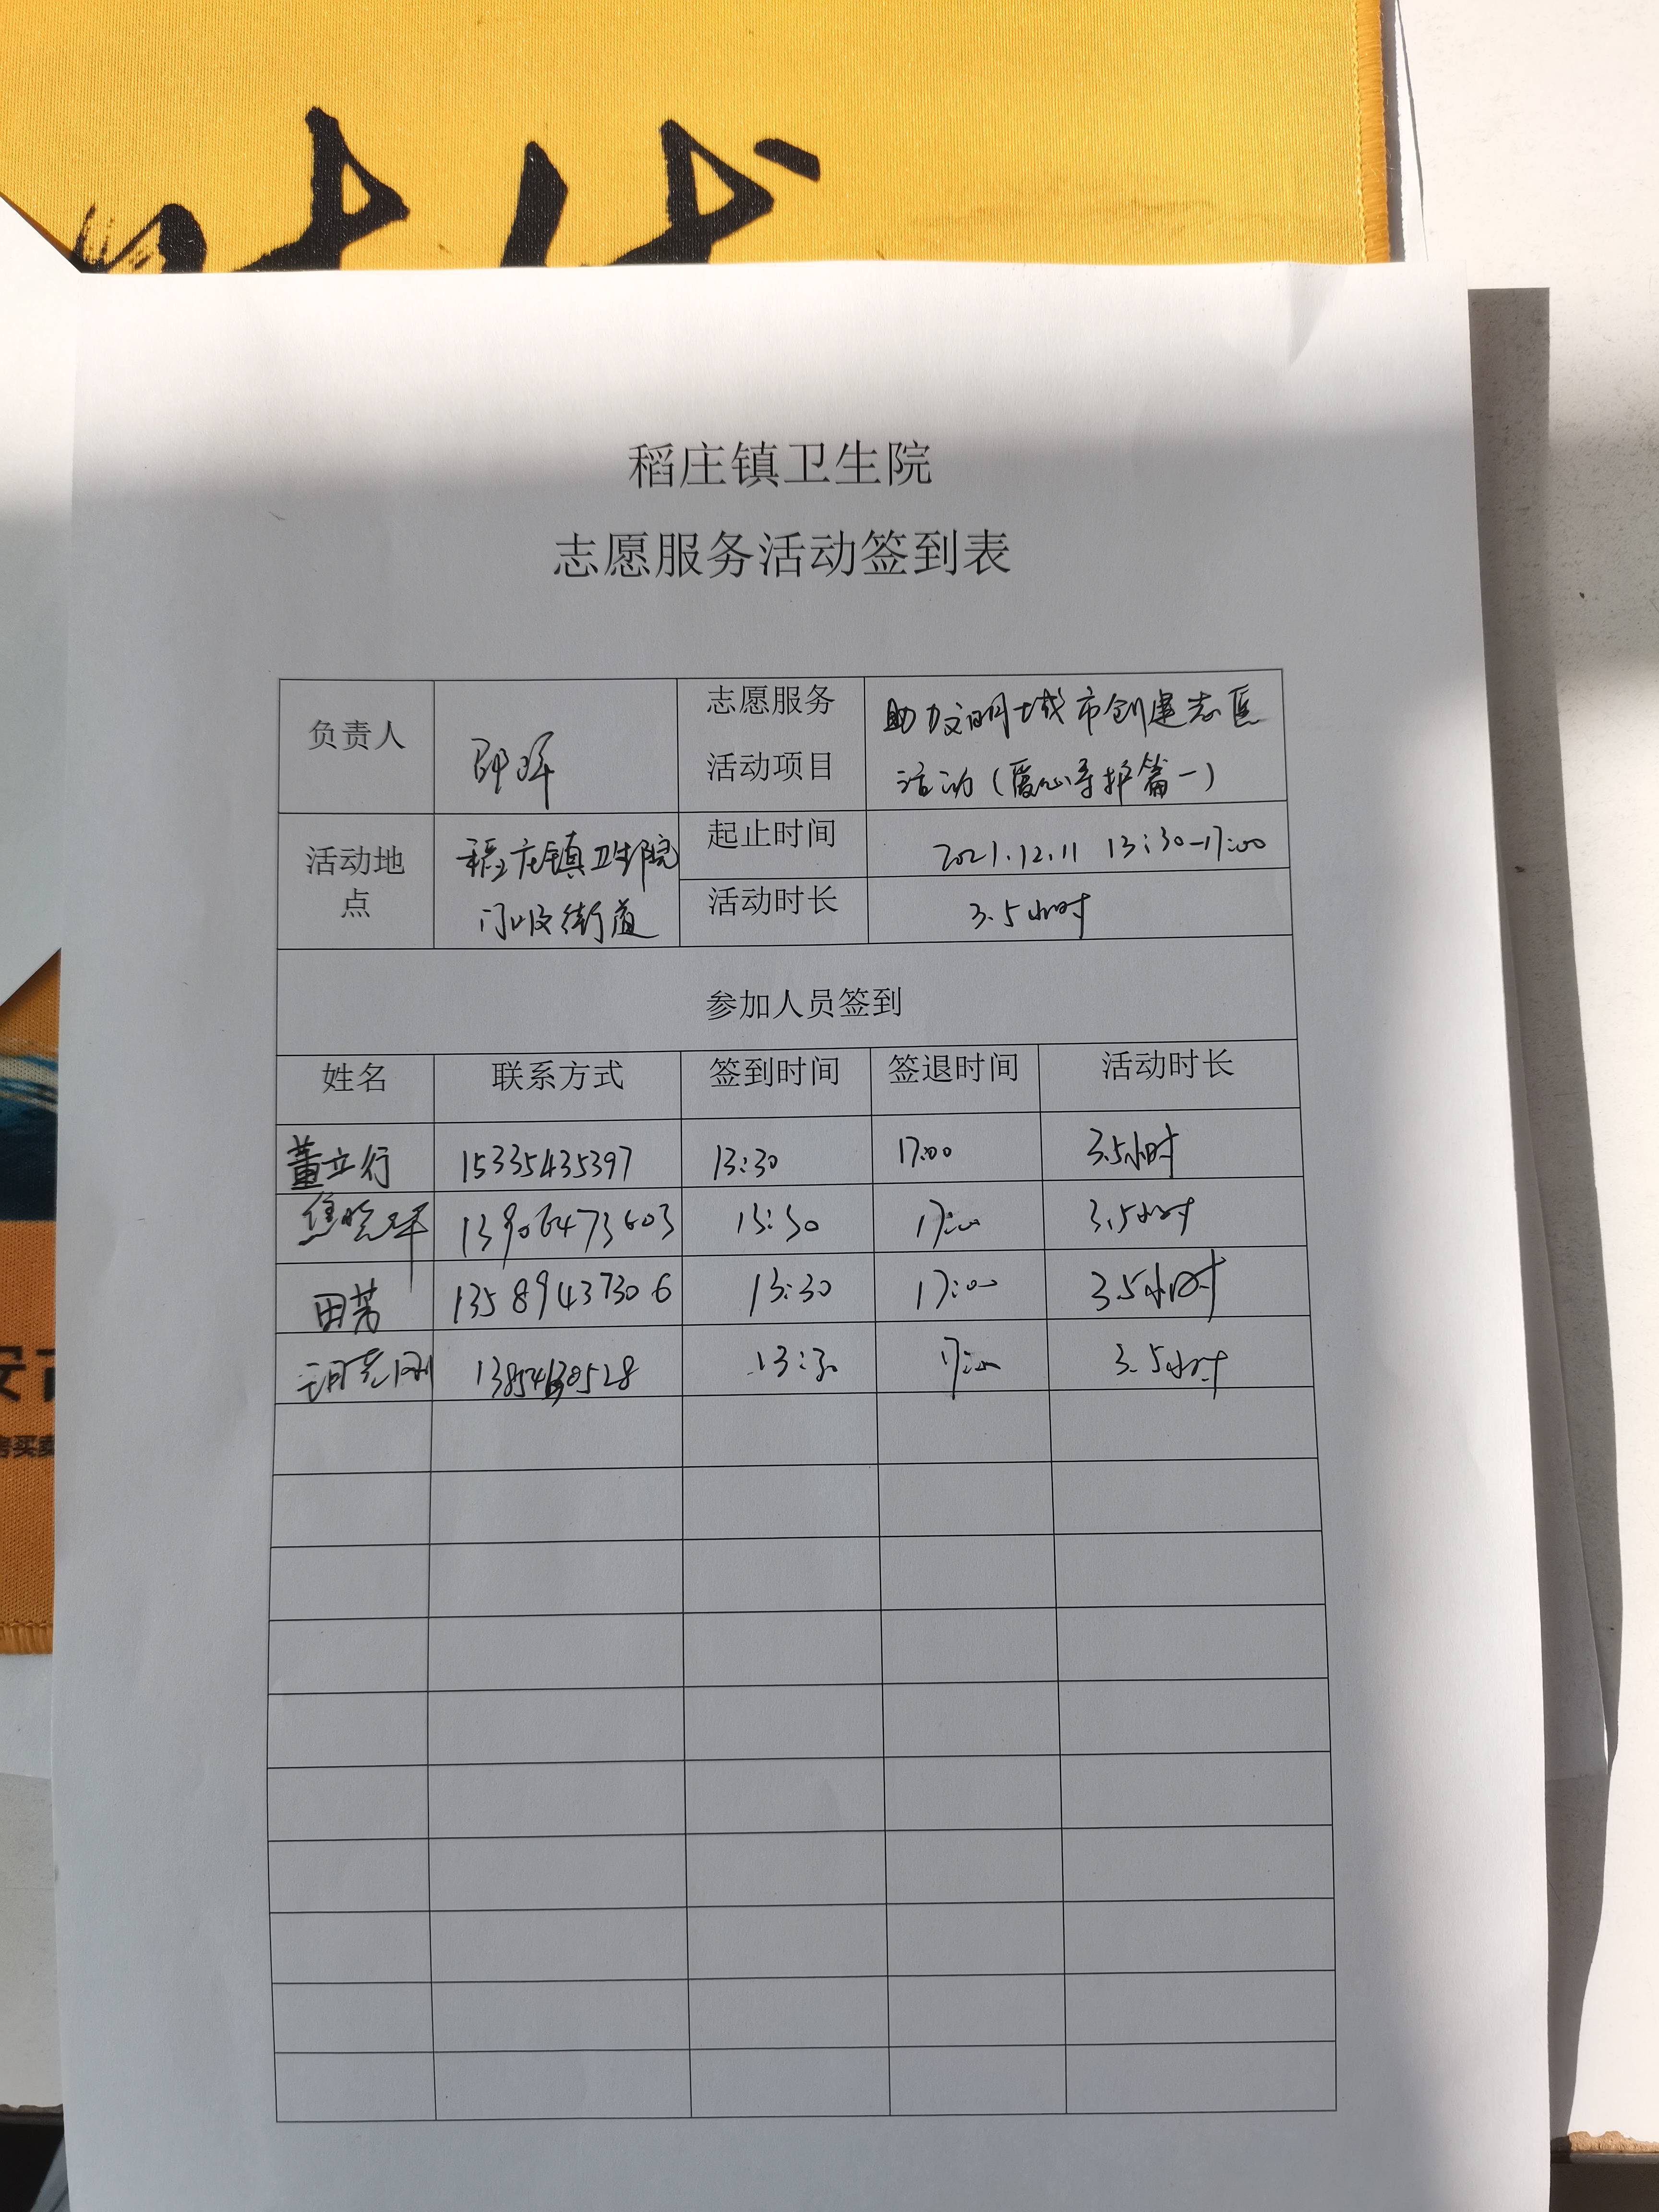 时代
稻庄镇卫生院
志愿服务活动签到表
负责人
志愿服务
活动项目
助力文明城市创建志医
活动(爱心导护篇一)
活动地
点
稻庄镇卫生院
门收街道
起止时间
2021.12.11 13:30-17:00
活动时长
3.5小时
参加人员签到
姓名 联系方式 签到时间 签退时间 活动时长
董立行 15335435397 13:30 17:00 3.5小时
13906473603 13:30 17:00 3.5小时
田芳 13589437306 13:30 17:00 3.5小时
13:30 17:00 3.5小时